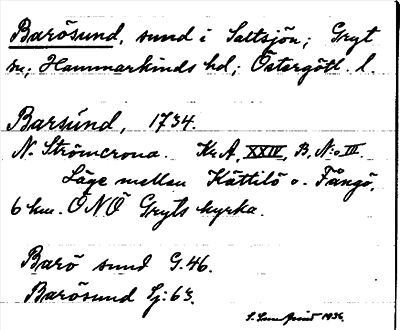 Barösund, sund i Saltsjön; Gryt
sn; Hammarkinds hd; Östergötl. l.
Barsund, 1734.
N. Strömcrona. Kr.A, XXIV, B, N:o III.
Läge mellan Kättilö o. Fångö,
6 km. ONO Gryts kyrka.
Barö sund G.46.
Barösund Sj:63.
1936.